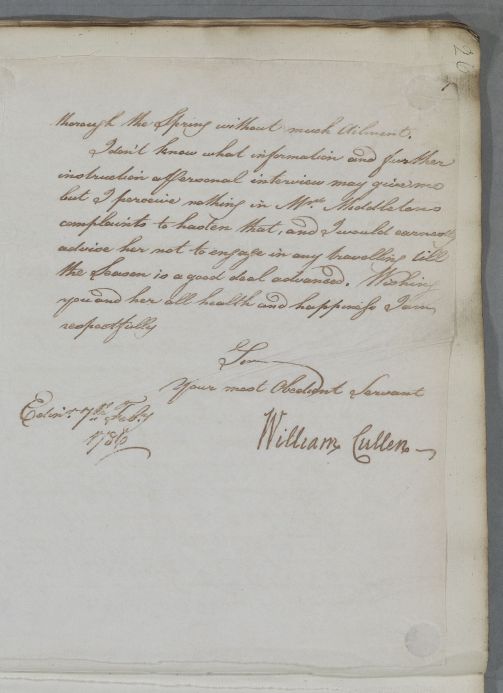 thorough the Spring without much Ailment.
I don't know what information and further
instruction a Personal interview may give me
but I perceive nothing in Mrs. Middletons
complaints to hasten that, and I would earnestly
advise her not to engage in any travelling till
the Season is a good deal advanced. Wishing
you and her all health and happiness I am
respectfully
Sir
Your most Obedient Servant
Edinr. 7th Feby
1786
William Cullen
26